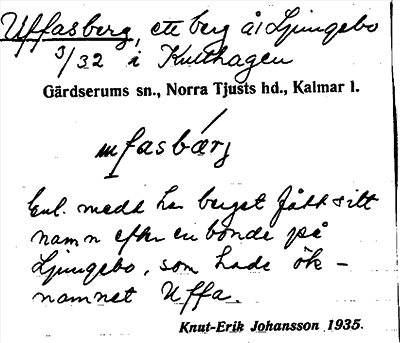 Uffasberg, ett berg å Ljungebo
3/32 i Kulthagen
Gärdserums sn., Norra Tjusts hd., Kalmar l.
ufasbærj
Enl. medd har berget fått sitt
namn efter en bonde på
Ljungebo, som hade ök-
namnet Uffa.
Knut-Erik Johansson 1935.